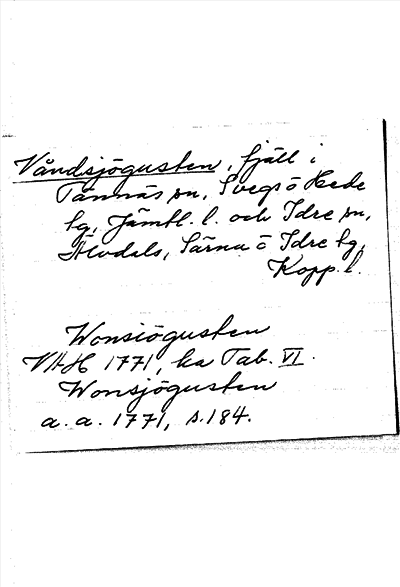 Våndsjögusten, fjäll i
Tännäs sn, Svegs o Hede
tg, Jämtl. l. och Idre sn,
Älvdals, Särna o Idre tg,
Kopp. l.
Wonsiögusten
VAH 1771, ka Tab. VI.
Wonsjögusten
a. a. 1771, s. 184.